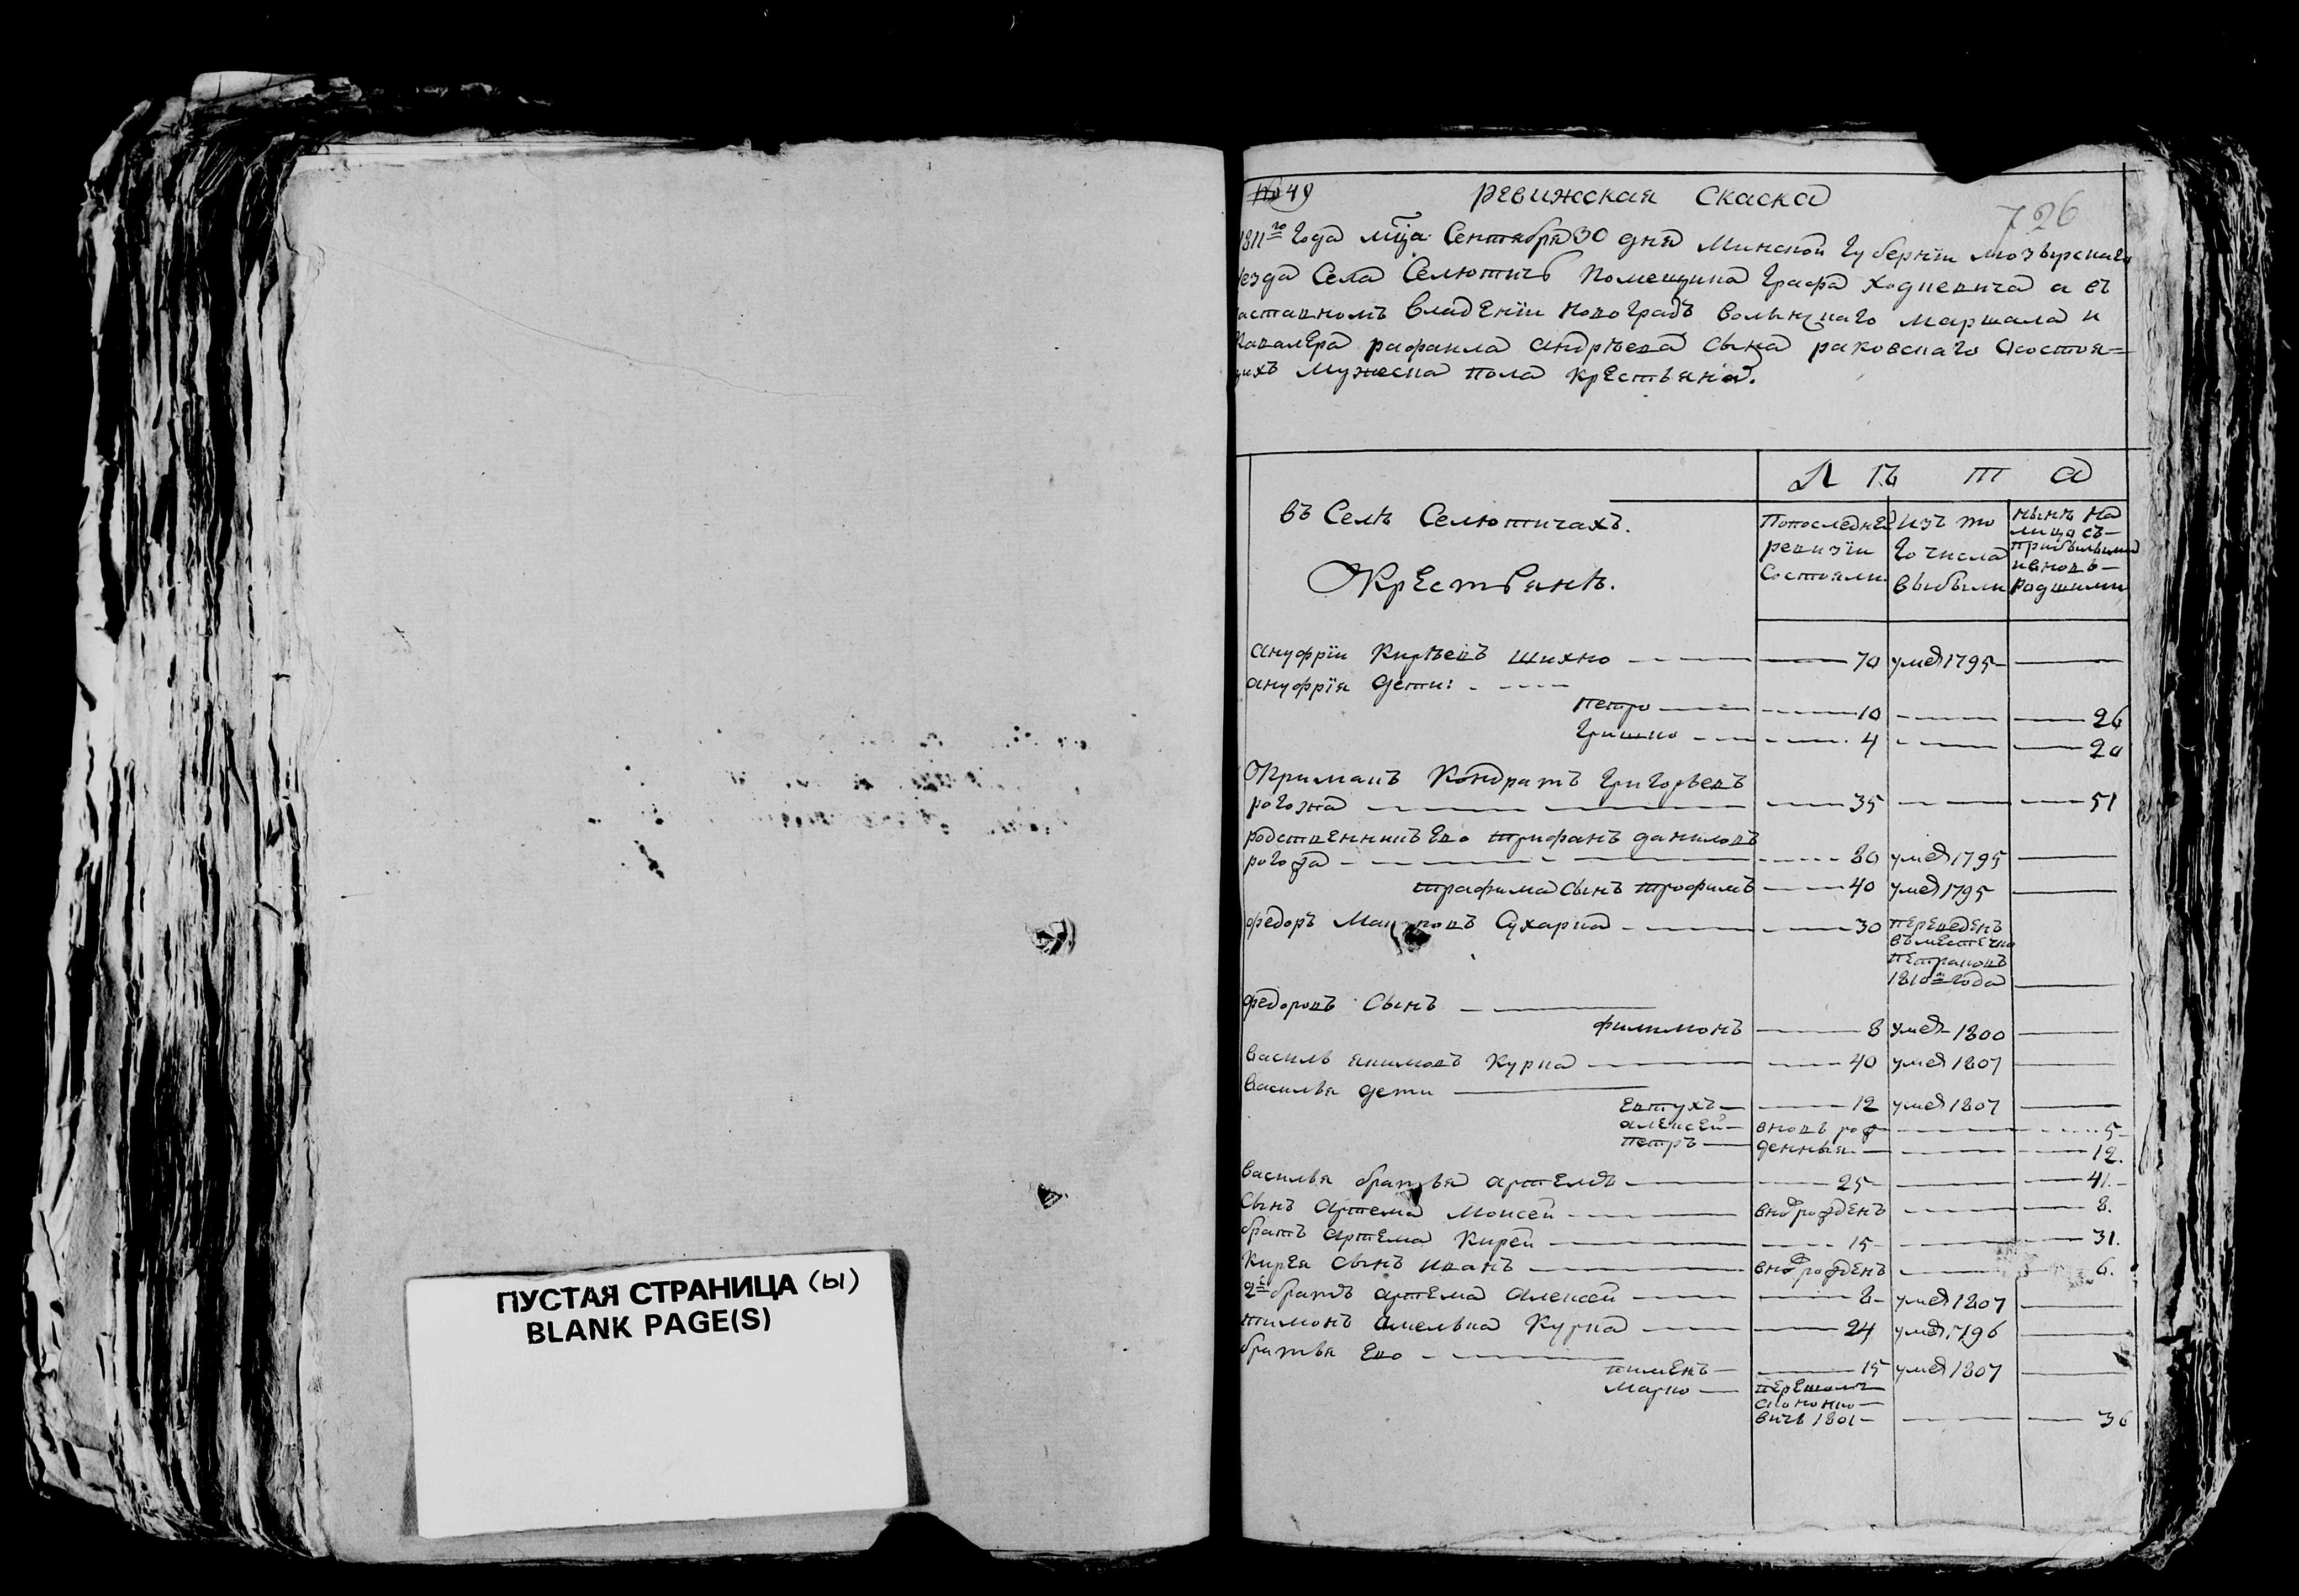 ПУСТАЯ СТРАНИЦА (ы)
BLANK PAGE(S)
№ 49
726
Ревижская Скаска
1811го Года мца Сентября 30 дня Минской Губернїи Мозырскаго
уезда Села Селютичь Помещика Графа Ходкевича а въ
заставномъ Владенїи Новоградъ Волынскаго Маршала и
Кавалера рафаила андрѣева сына раковскаго Осостоя=
щихъ Мужеска пола крестьяна.
Лѣта
въ Селѣ Селютичахъ.
Окрестьянѣ.
Попоследней ревизїи Состояли
Изъ то го числа Выбыли
нынѣ На лицо съ— прибылыми ивновь— Родшими
ануфрїи Кирѣевъ шихно — 70 умеръ 1795 —
ануфрїя Дети:
Петро — 10 — 26
Гришко — 4 — 20
Окриманъ Кондратъ Григорьевъ
рогожа — 35 — 51
родственникъ Ево трифанъ даниловъ
рогожа — 80 умеръ 1795 —
трафима Сынъ трофимъ — 40 умеръ 1795 —
федоръ Сухарка — 30 переведенъ
въместечко
Петраковъ
1810го года —
федоровъ Сынъ —
филимонъ — 8 умер 1800 —
Василь якимовъ Курка — 40 умеръ 1807 —
Василья дети —
Евтухъ — 12 умеръ 1807 —
алексей — вновь рож — 5
Петръ — денныя — 12.
Василья братья артемъ — 25 — 41.
Сынъ Артема Моисей — внов рожденъ — 8.
братъ Артема Кирей — 15 — 31.
Кирея Сынъ иванъ — внов рожденъ — 6.
2й братъ артема Алексей — 8 умеръ 1807 —
тимонъ Амелька Курка — 24 умеръ 1796 —
братья Ево —
пименъ — 15 умеръ 1807 —
Марко — перешолъ
вичъ 1801 — 36